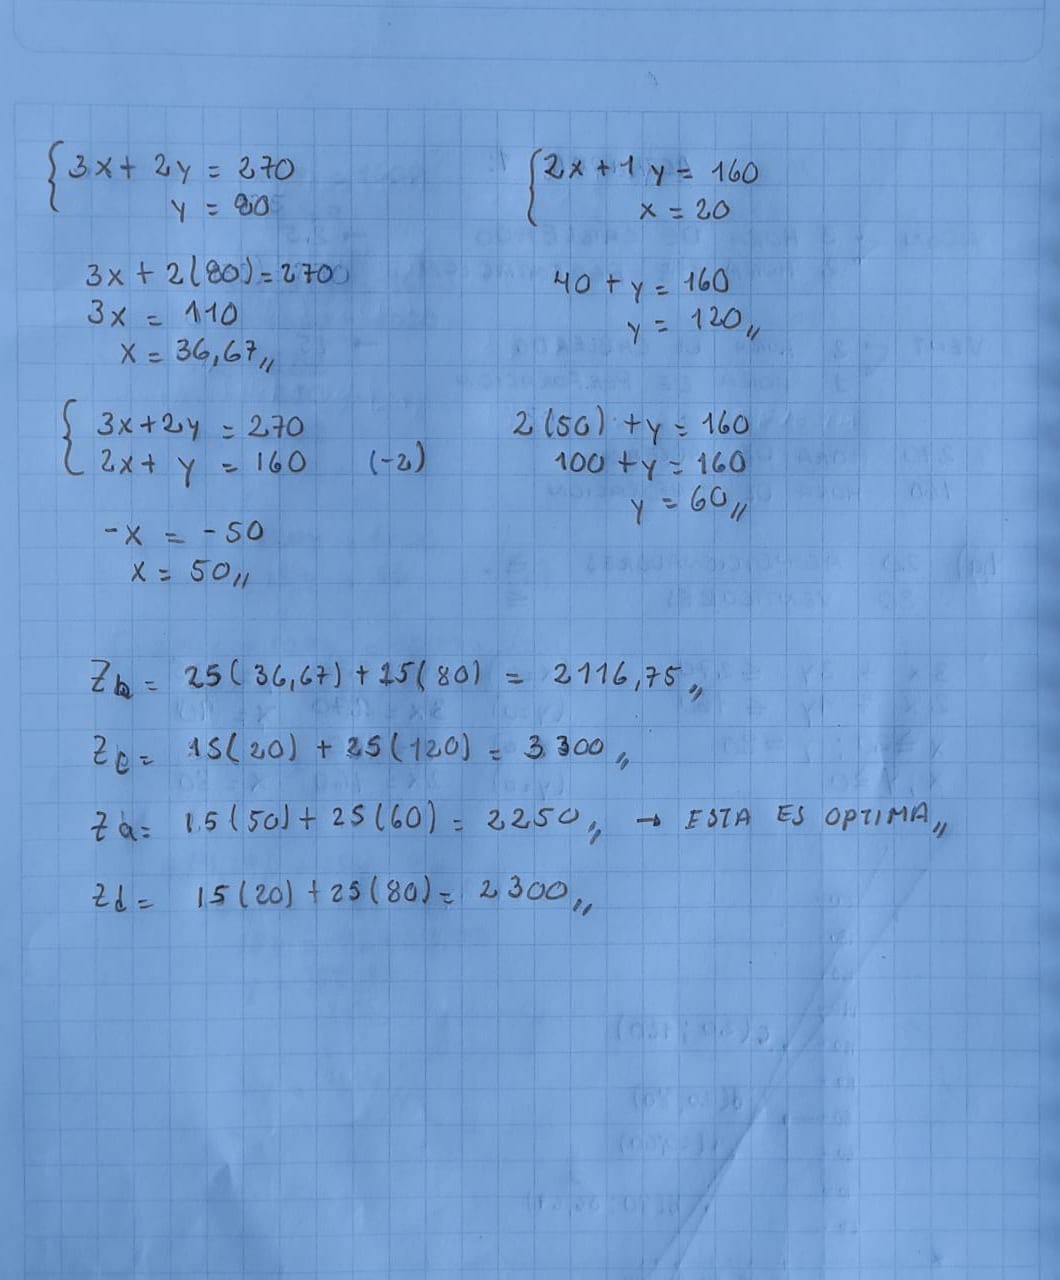 3x + 2y = 270
y = 80
3x + 2(80) = 270
3x = 110
x = 36,67,,
2x + 1y = 160
x = 20
40 + y = 160
y = 120,,
3x + 2y = 270
2x + y = 160 (-2)
-x = -50
x = 50,,
2(50) + y = 160
100 + y = 160
y = 60,,
Zb = 25(36,67) + 15(80) = 2116,75,,
Zc = 15(20) + 25(120) = 3300,,
Za = 15(50) + 25(60) = 2250,, → ESTA ES OPTIMA,,
Zd = 15(20) + 25(80) = 2300,,